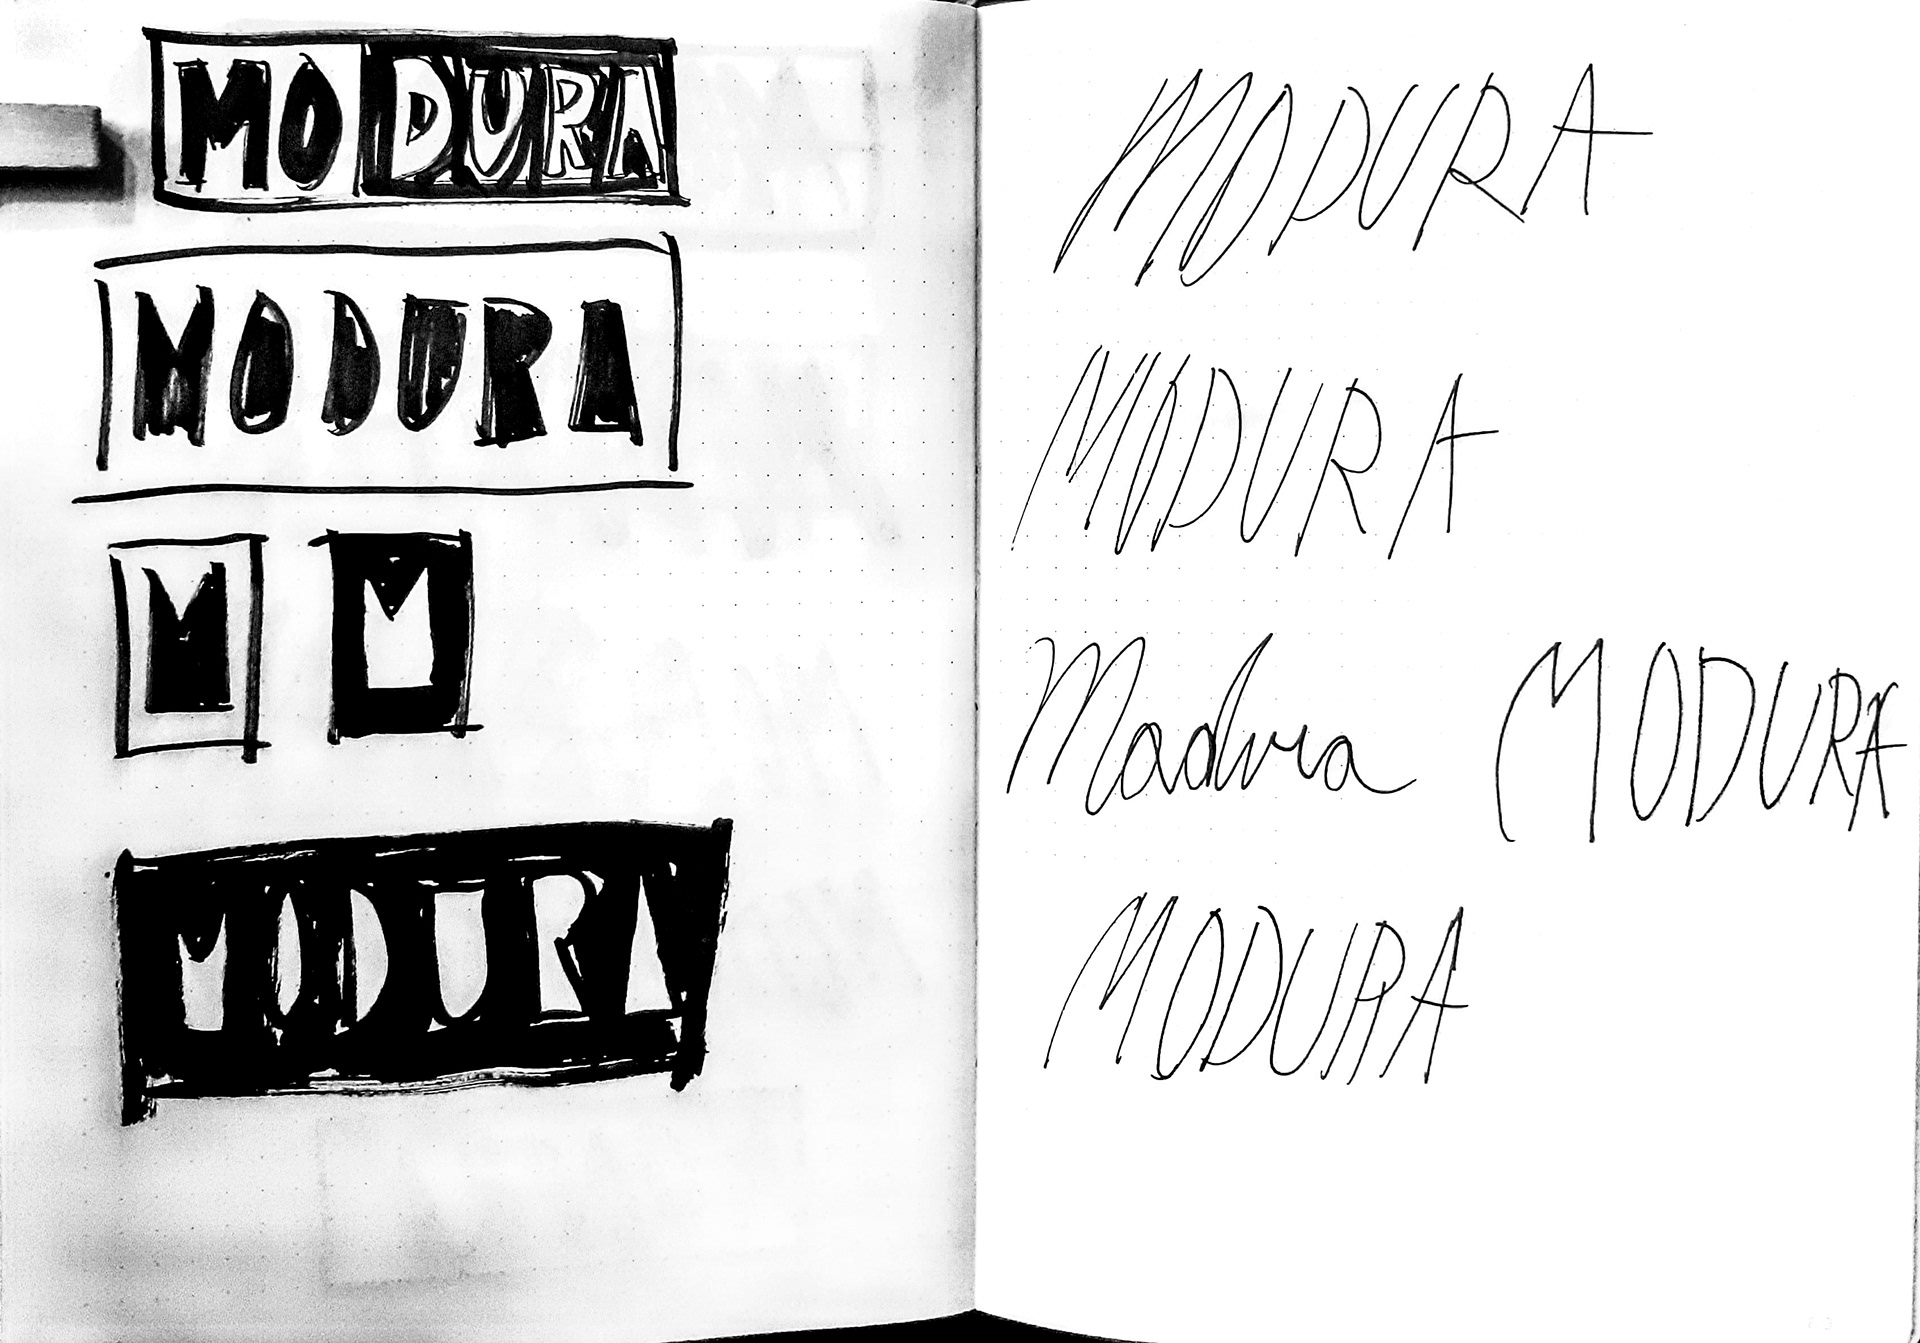 MODURA
MODURA
M M
MODURA
MODURA
MODURA
Modura MODURA
MODURA